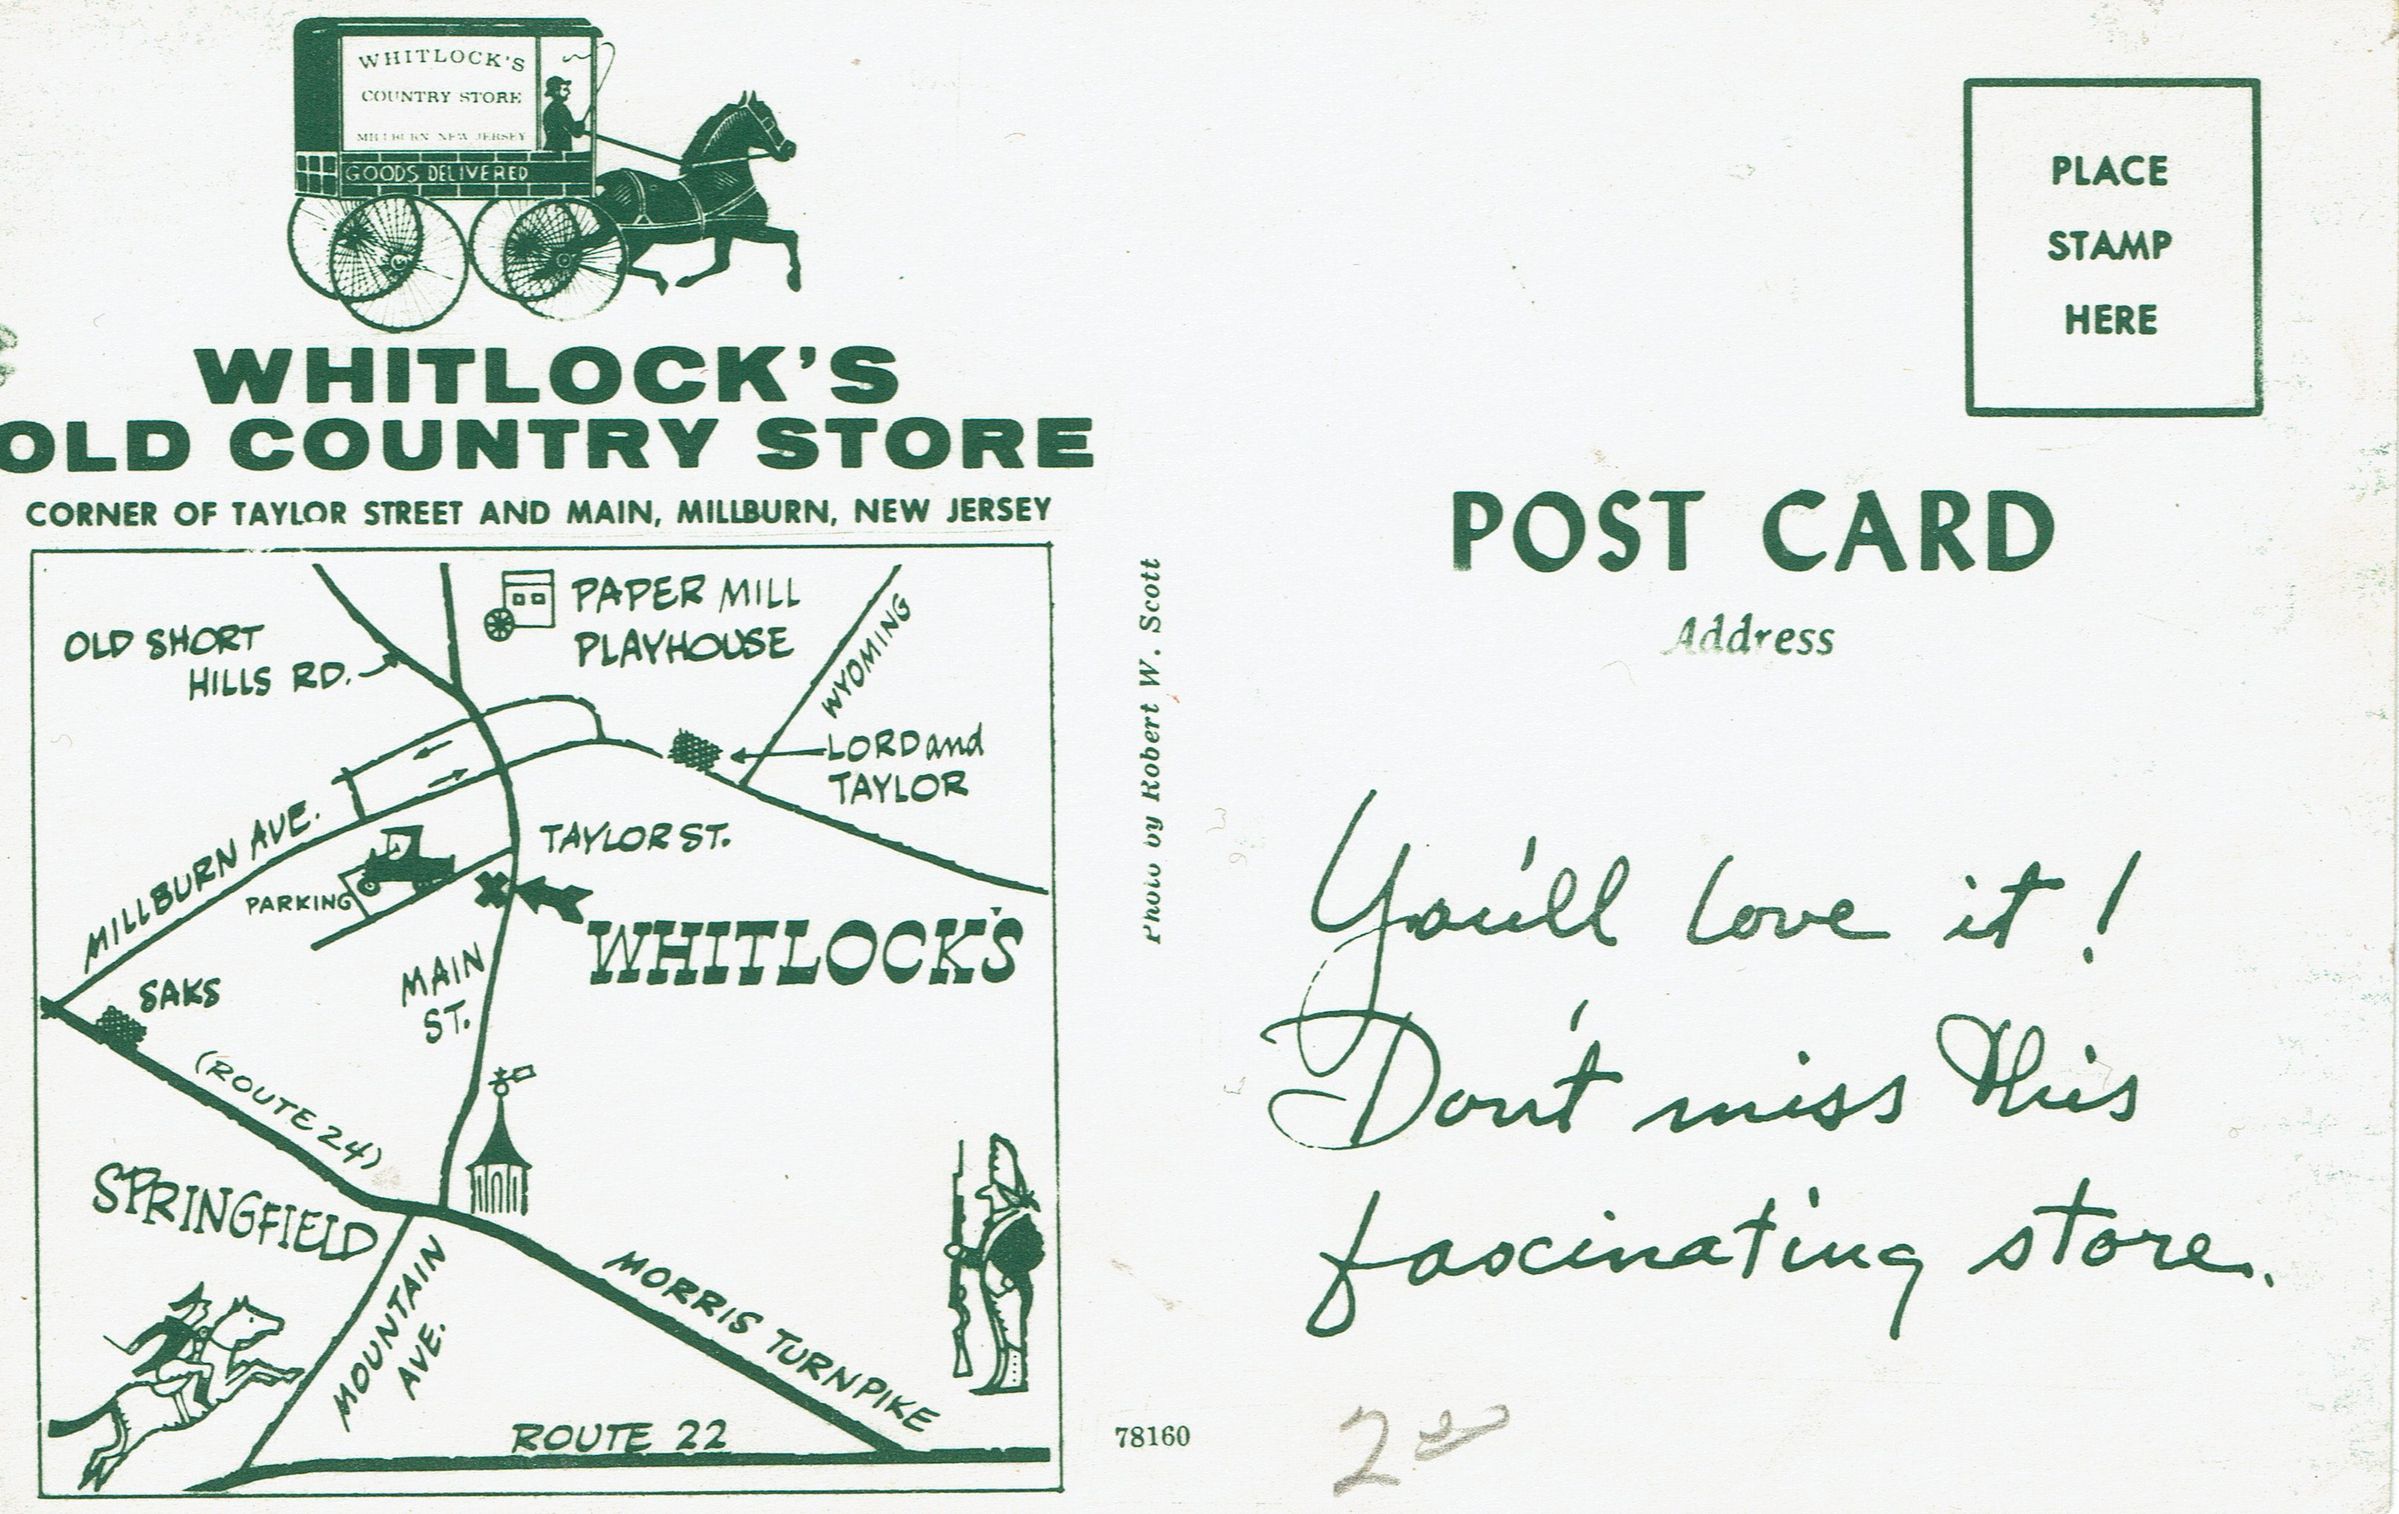 WHITLOCK'S
COUNTRY STORE
MILLBURN NEW JERSEY
GOODS DELIVERED
WHITLOCK'S
OLD COUNTRY STORE
CORNER OF TAYLOR STREET AND MAIN, MILLBURN, NEW JERSEY
OLD SHORT
HILLS RD.
PAPER MILL
PLAYHOUSE
WYOMING
LORD and
TAYLOR
MILLBURN AVE.
TAYLOR ST.
PARKING
WHITLOCK'S
MAIN
ST.
SAKS
(ROUTE 24)
SPRINGFIELD
MOUNTAIN
AVE.
MORRIS TURNPIKE
ROUTE 22
Photo by Robert W. Scott
78160
PLACE
STAMP
HERE
POST CARD
Address
You'll love it!
Don't miss this
fascinating store.
2 00